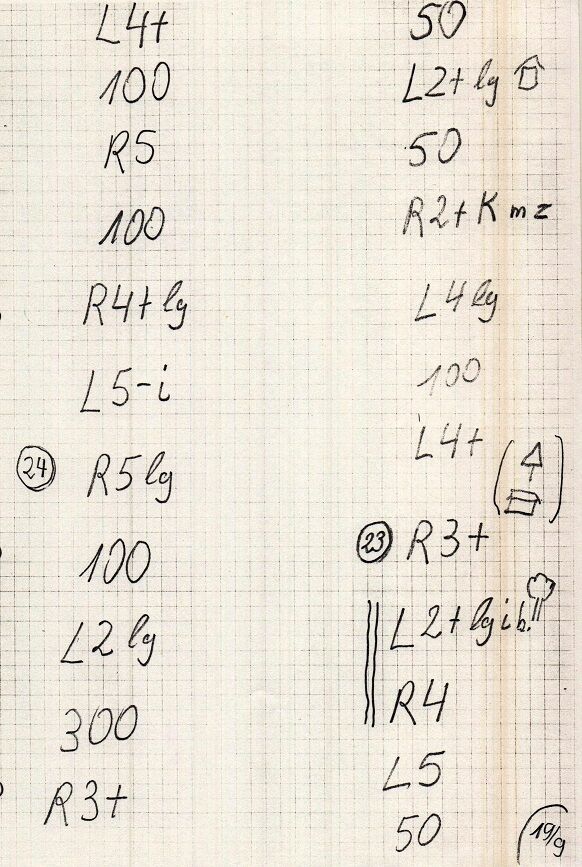 L4+
100
R5
100
R4+lg
L5-i
24 R5lg
100
L2 lg
300
R3+
50
L2+lg
50
R2+K m z
L4lg
100
L4+
23 R3+
L2+lg i b.
R4
L5
50
19/9